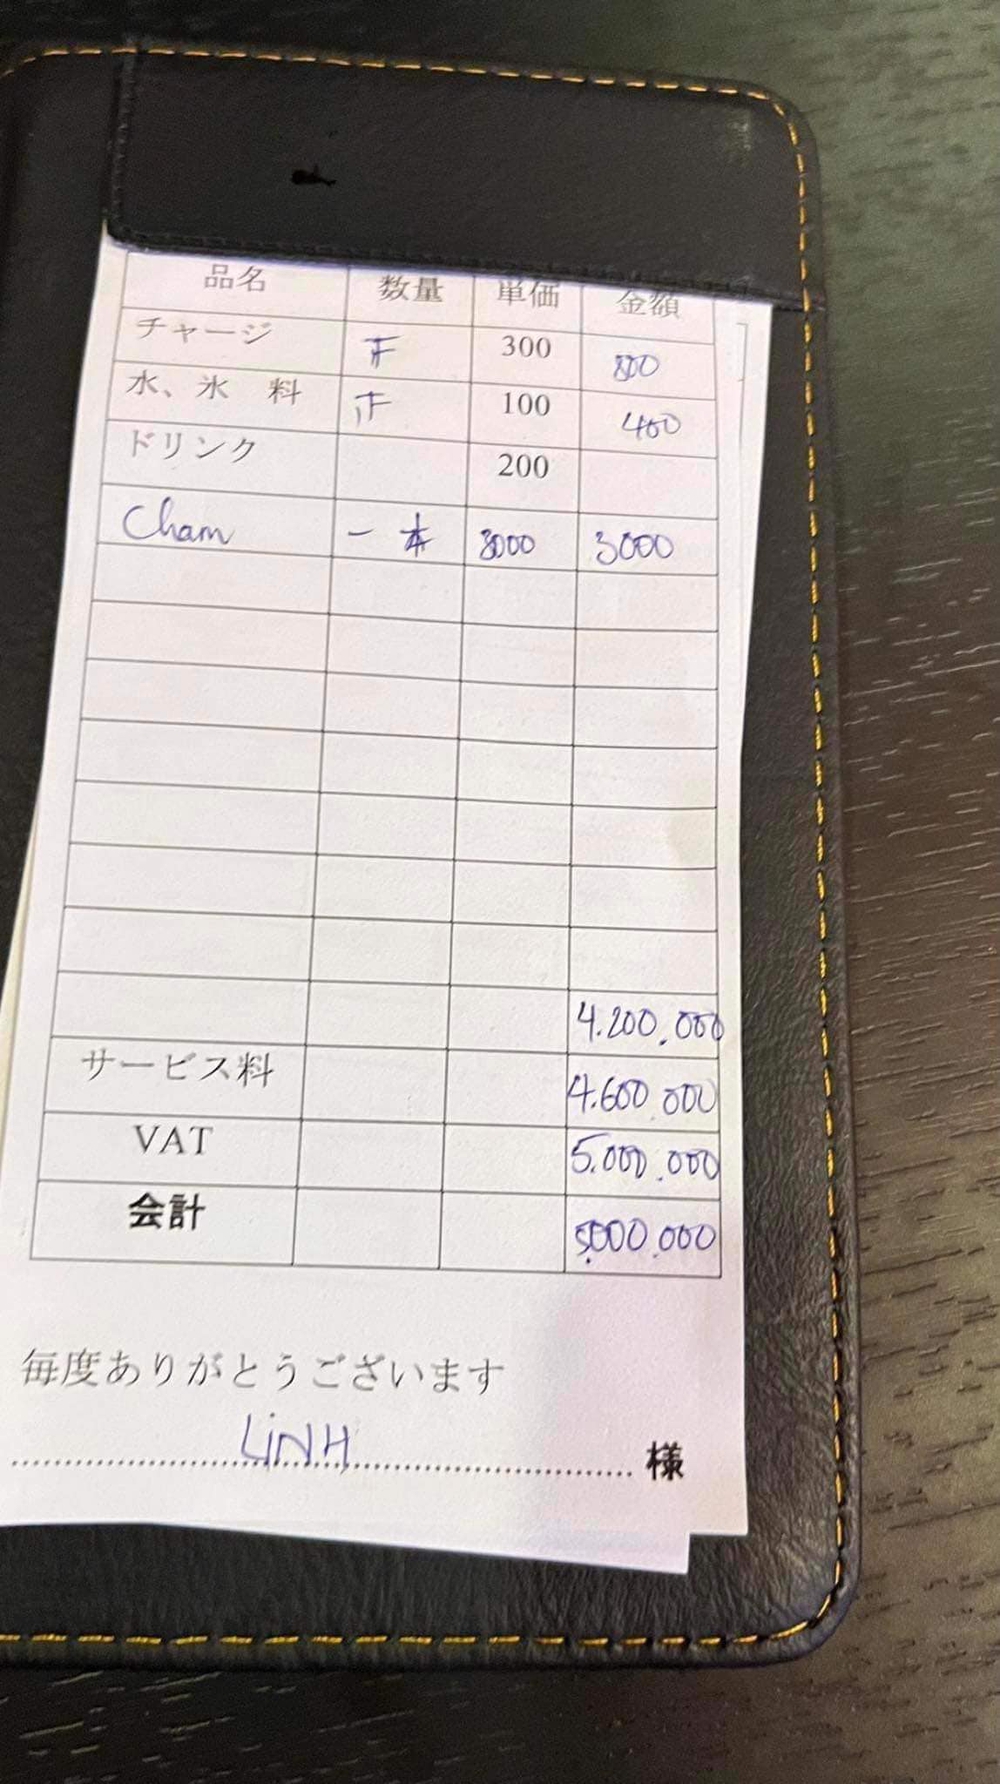 品名 数量 単価 金額
チャージ 300 800
水、氷 料 100 400
ドリンク 200
Cham 一 本 3000 3000
4.200.000
サービス料 4.600.000
VAT 5.000.000
会計 5.000.000
毎度ありがとうございます
LiNH 様